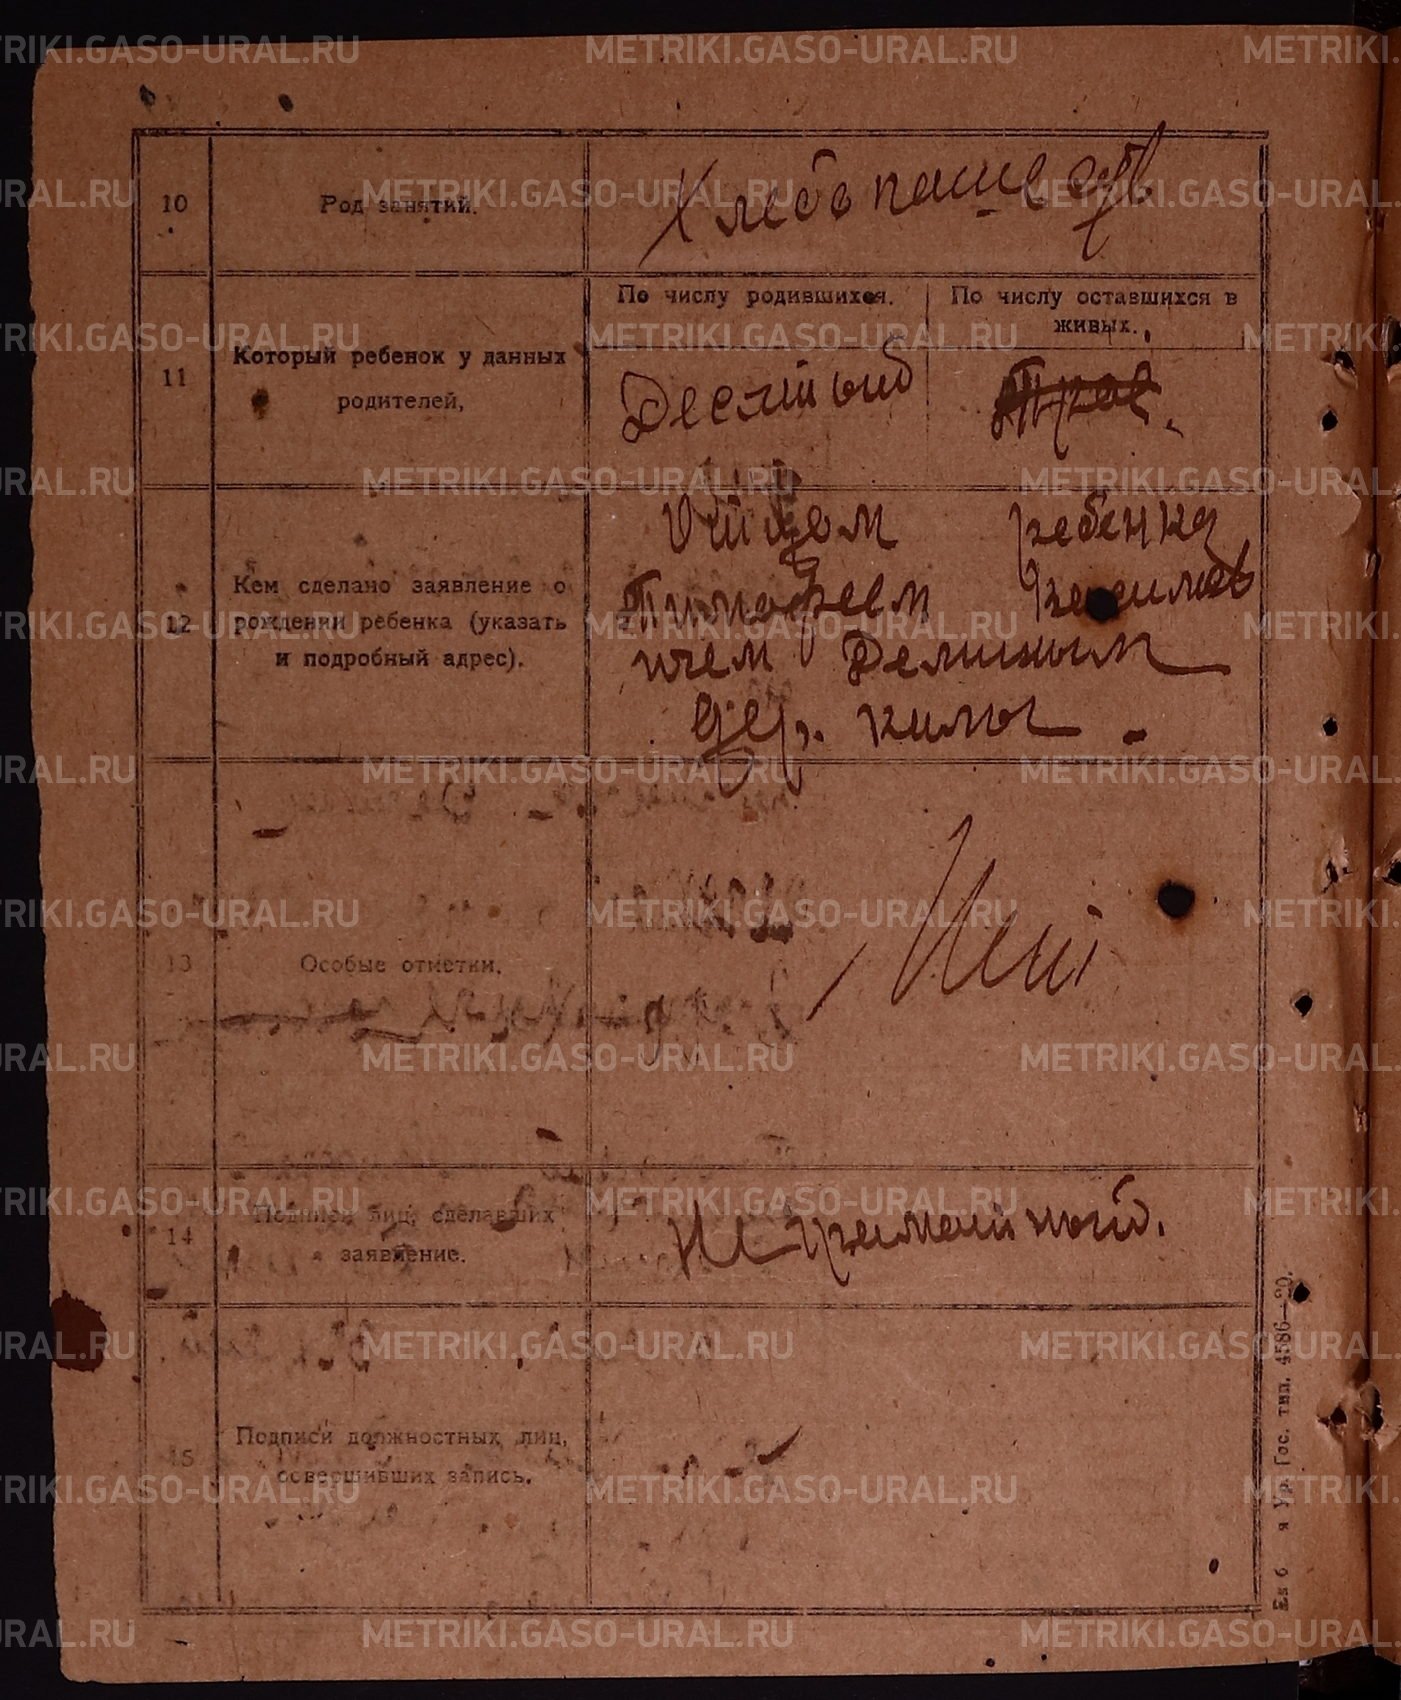 METRIKI.GASO-URAL.RU
10
Род занятий.
Хлебопашество
11
Который ребенок у данных
родителей,
По числу родившихся.
По числу оставшихся в
живых.
Десятый
12
Кем сделано заявление о
рождении ребенка (указать
и подробный адрес).
Отцем ребенка
Тимофеем
ичем
дер.
13
Особые отметки.
Нет
14
Подписи лиц, сделавших
заявление.
Неграмотный.
15
Подписи должностных лиц,
совершивших запись.
Гос. тип. 4586—20.